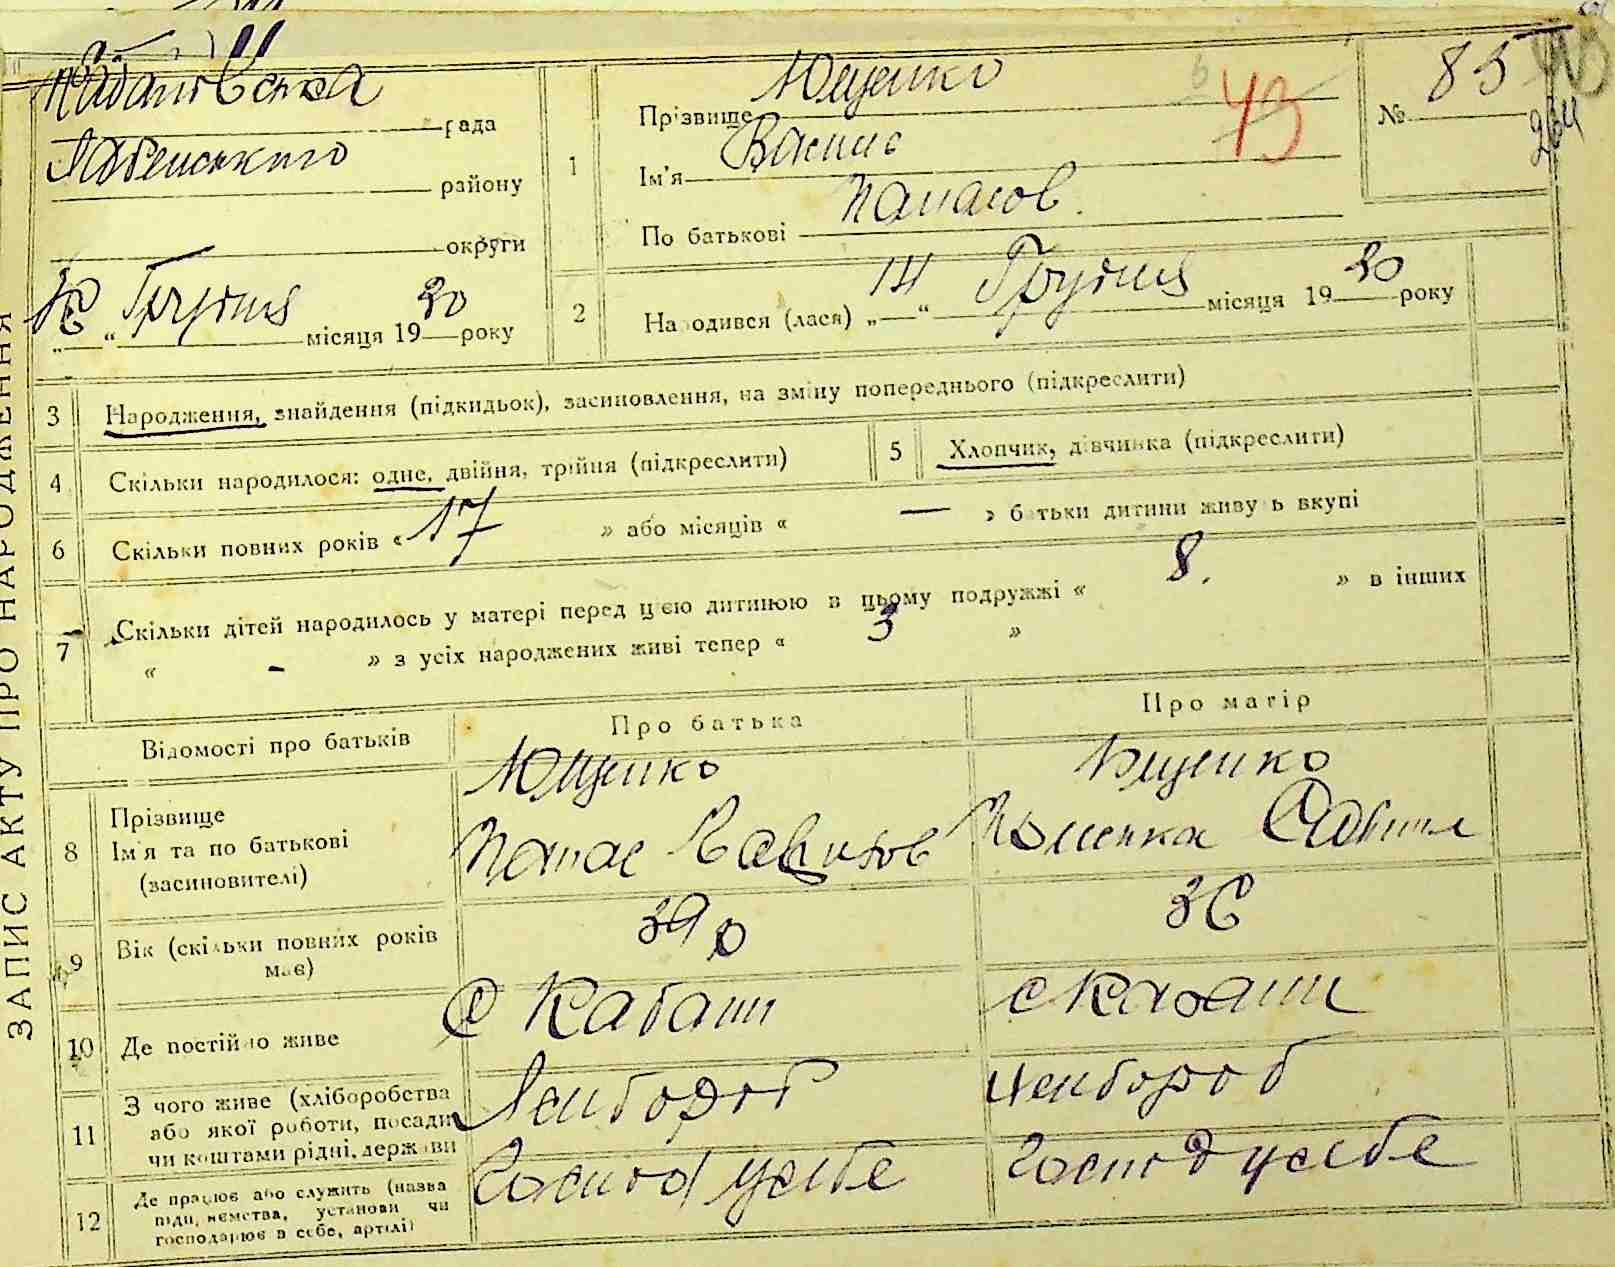 Кабанівська рада
району
округи
16 „ “ Грудня місяця 1930 року
1
Прізвище Ющенко
Ім'я Василь
По батькові Панасов.
43
№ 85
2
Народився (лася) „14“ Грудня місяця 1930 року
ЗАПИС АКТУ ПРО НАРОДЖЕННЯ
3 Народження, знайдення (підкидьок), засиновлення, на зміну попереднього (підкреслити)
4 Скільки народилося: одне, двійня, трійня (підкреслити)
5 Хлопчик, дівчинка (підкреслити)
6 Скільки повних років « 17 » або місяців « — » батьки дитини живуть вкупі
7 Скільки дітей народилось у матері перед цією дитиною в цьому подружжі « 8. » в інших
« - » з усіх народжених живі тепер « 3 »
Відомості про батьків
Про батька
Про матір
8 Прізвище
Ім'я та по батькові
(засиновителі)
Ющенко
Панас
Ющенко
9 Вік (скільки повних років
має)
39
36
10 Де постійно живе
с Кабани
с Кабани
11 З чого живе (хліборобства
або якої роботи, посади
чи коштами рідні, держави
Хлібороб
Хлібороб
12 Де працює або служить (назва
підприємства, установи чи
господарює в себе, артілі)
Господ у себе
Господ у себе